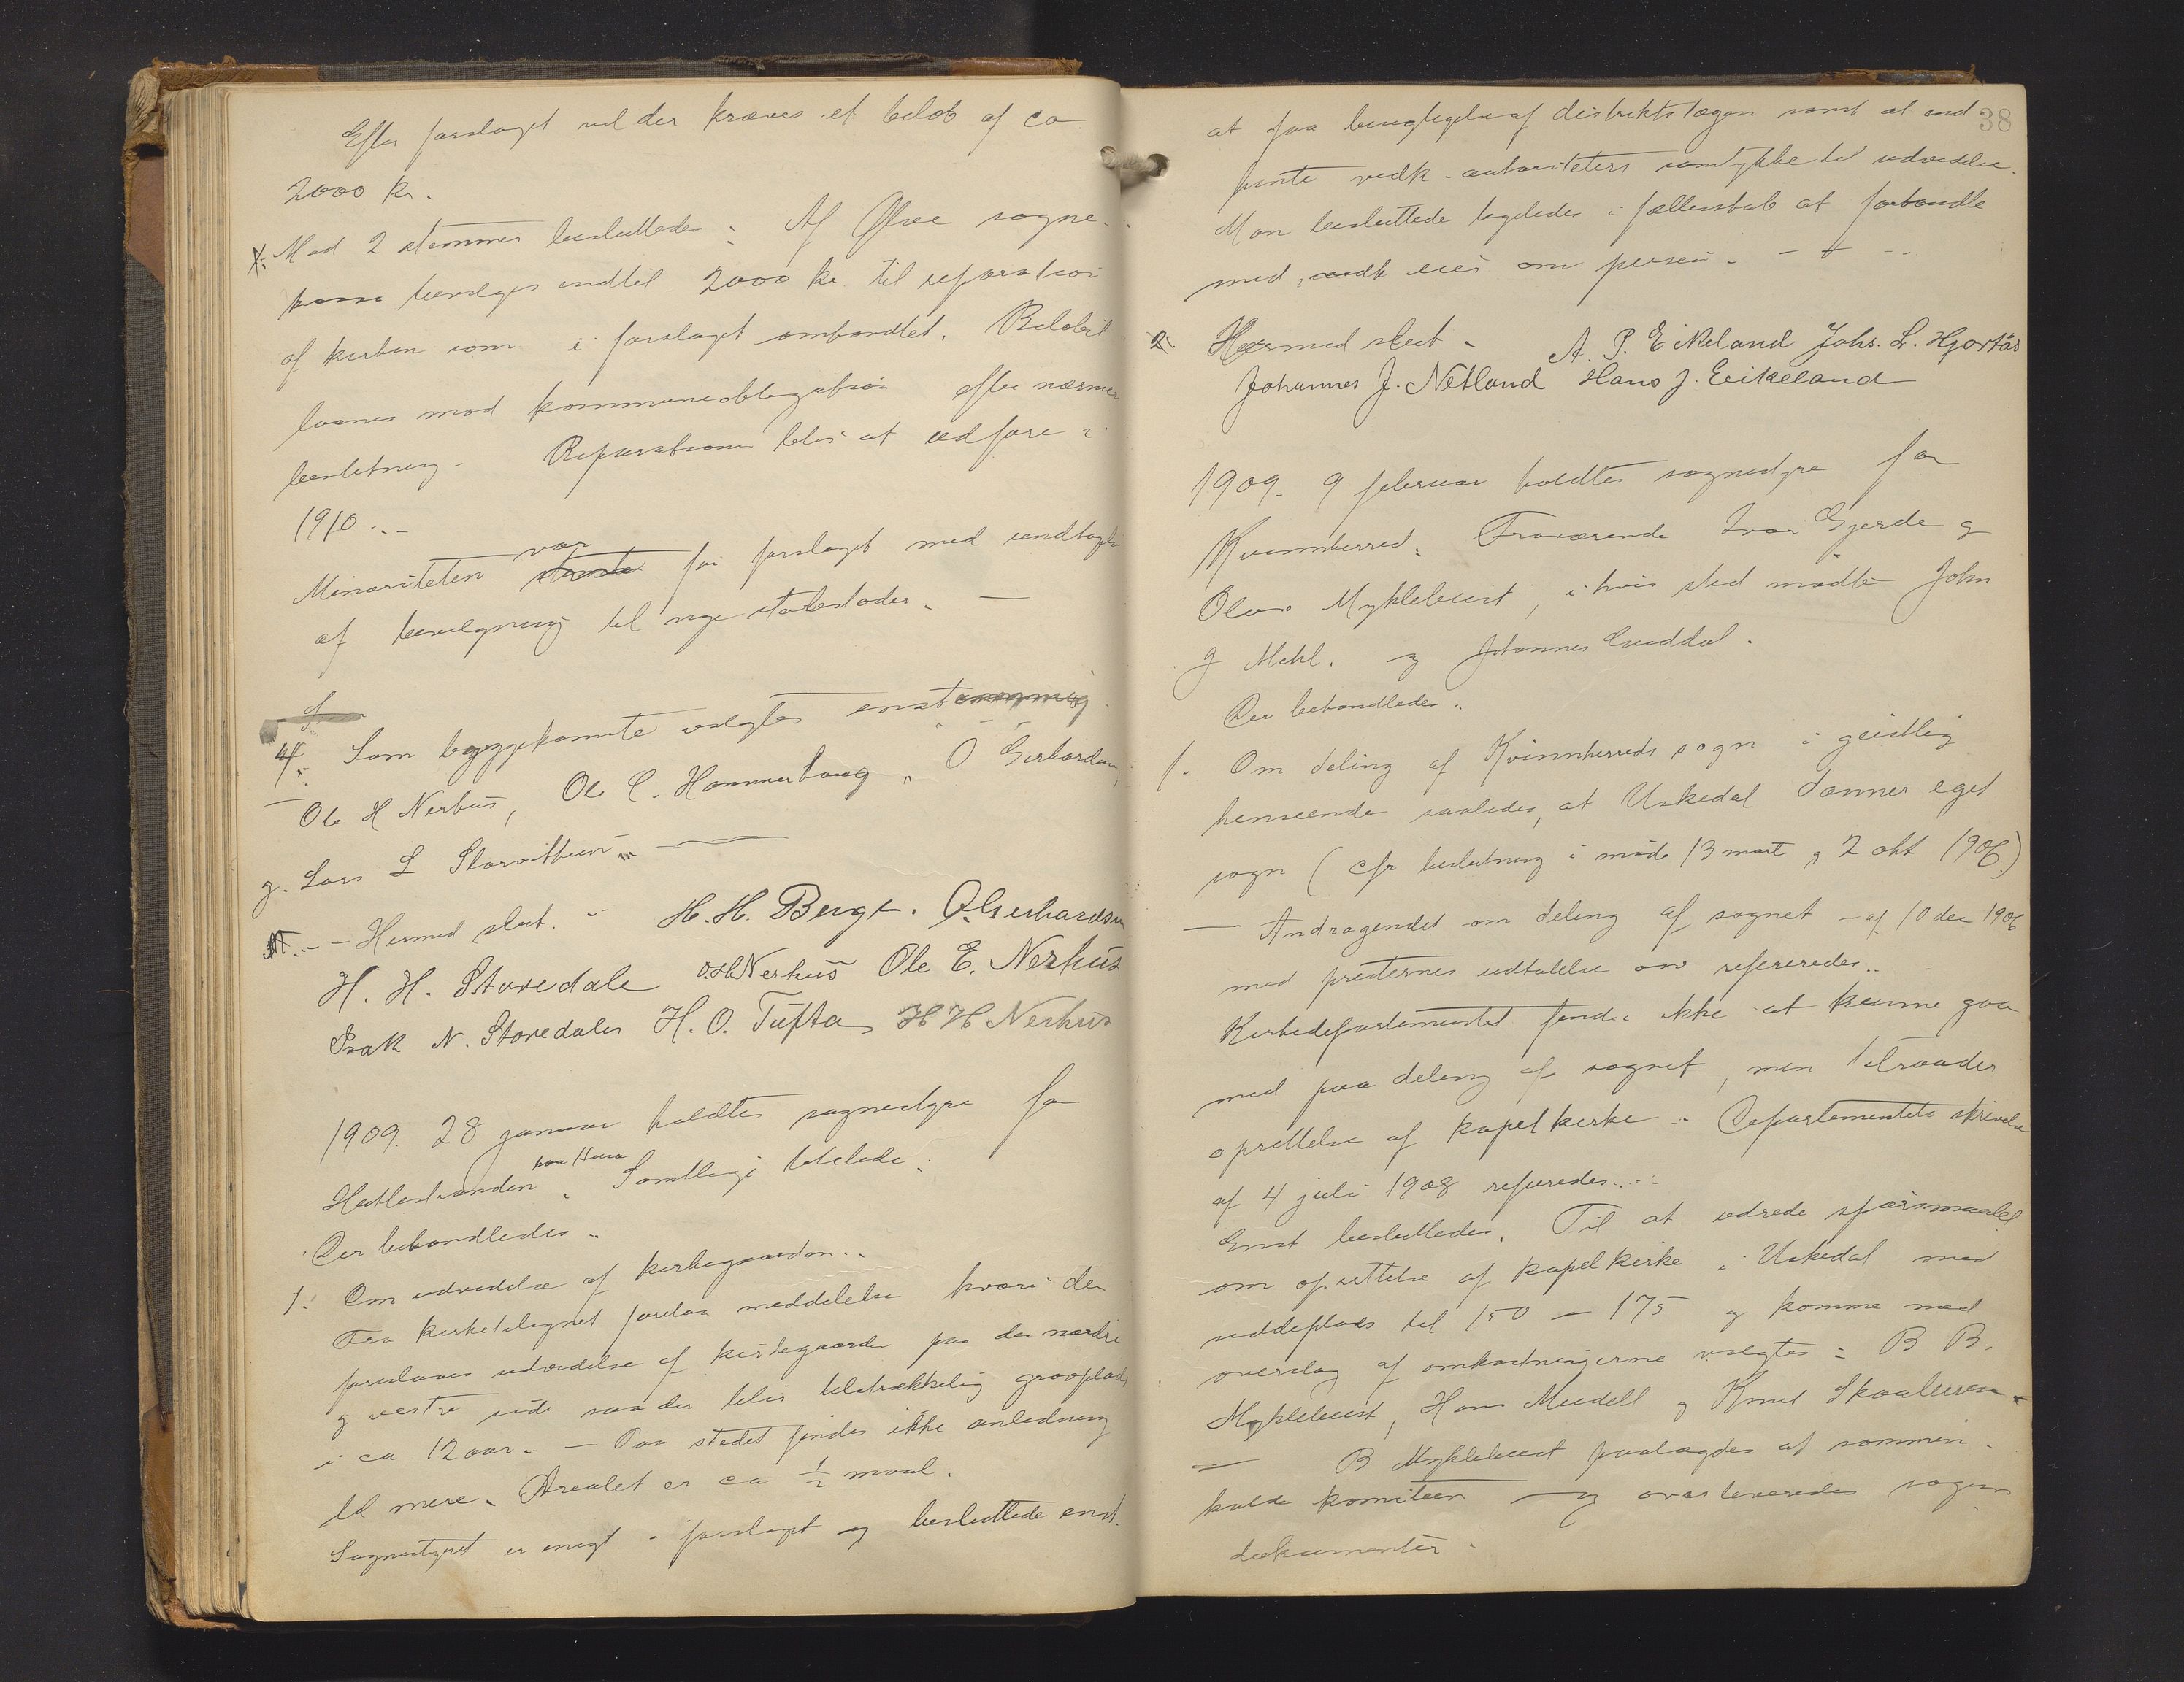 Efter forslaget vil der kræves et beløb af ca
2000 kr.
Mod 2 stemmer besluttedes: Af Ølve sogne-
kasse bevilges indtil 2000 kr til reparation
af kirken som i forslaget ombandlet. Beløbet
laanes mod kommuneobligation efter nærmere
beslutning. Reparationen blir at udføre i
1910..-
Minoriteten var stemte for forslaget med undtagelse
af bevilgning til nye stolestader. —
4. Som byggekomite valgtes enstemmig
Ole H Nerhus, Ole C. Hammerhaug, O Gerhardsen,
og Lars L Storvitteun.. —
- Hermed slut. - H. H. Berge. O. Gerhardsen
H. H. Storedale O.H.Nerhus Ole E. Nerhus
Isak N. Storedale H. O. Tufta H H Nerhus
1909. 28 januar holdtes sognestyre for
Hatlestranden paa Husa. Samtlige tilstede.
Der behandledes..
1. Om udvidelse af kirkegaarden..
Fra kirketilsynet forelaa meddelelse hvori der
foreslaaes udvidelse af kirkegaarden paa den nordre
og vestre side saa der blir tilstrækkelig gravplads
i ca 12 aar.. — Paa stedet findes ikke anledning
til mere. Arealet er ca ½ maal.
Sognestyret er enigt i forslaget og besluttede enst.
38
at faa besigtigelse af distriktslægen samt at ind
hente vedk. autoriteters samtykke til udvidelse.
Man besluttede ligeledes i fællesskab at forhandle
med vedk eier om prisen. - + --
2. Hermed slut. A. P. Eikeland Johs. L. Hjortås
Johannes J. Netland Hans J. Eeikeland
1909. 9 februar holdtes sognestyre for
Kvinnherred. Fraværende Ivar Gjerde og
Olav Myklebust, i hvis sted mødte John
J Mehl. og Johannes Guddal.
Der behandledes..
1. Om deling af Kvinnherreds sogn i geistlig
henseende saaledes, at Uskedal danner eget
sogn (cfr beslutning i møde 13 mart og 2 okt 1906)
— Andragendet om deling af sognet - af 10 dec 1906
med presternes udtalelse ov refereredes..
Kirkedepartementet finder ikke at kunne gaa
med paa deling af sognet, men tilraader
oprettelse af kapelkirke.. Departementets skrivelse
af 4 juli 1908 refereredes....
Enst besluttedes. Til at udrede spørsmaalet
om oprettelse af kapelkirke i Uskedal med
siddeplads til 150 — 175 og komme med
overslag af omkostningerne valgtes: B B.
Myklebust, Hans Meidell og Knut Skaaluren.
— B Myklebust paalægdes at sammen-
kalde komiteen — og overleveredes sagens
dokumenter.